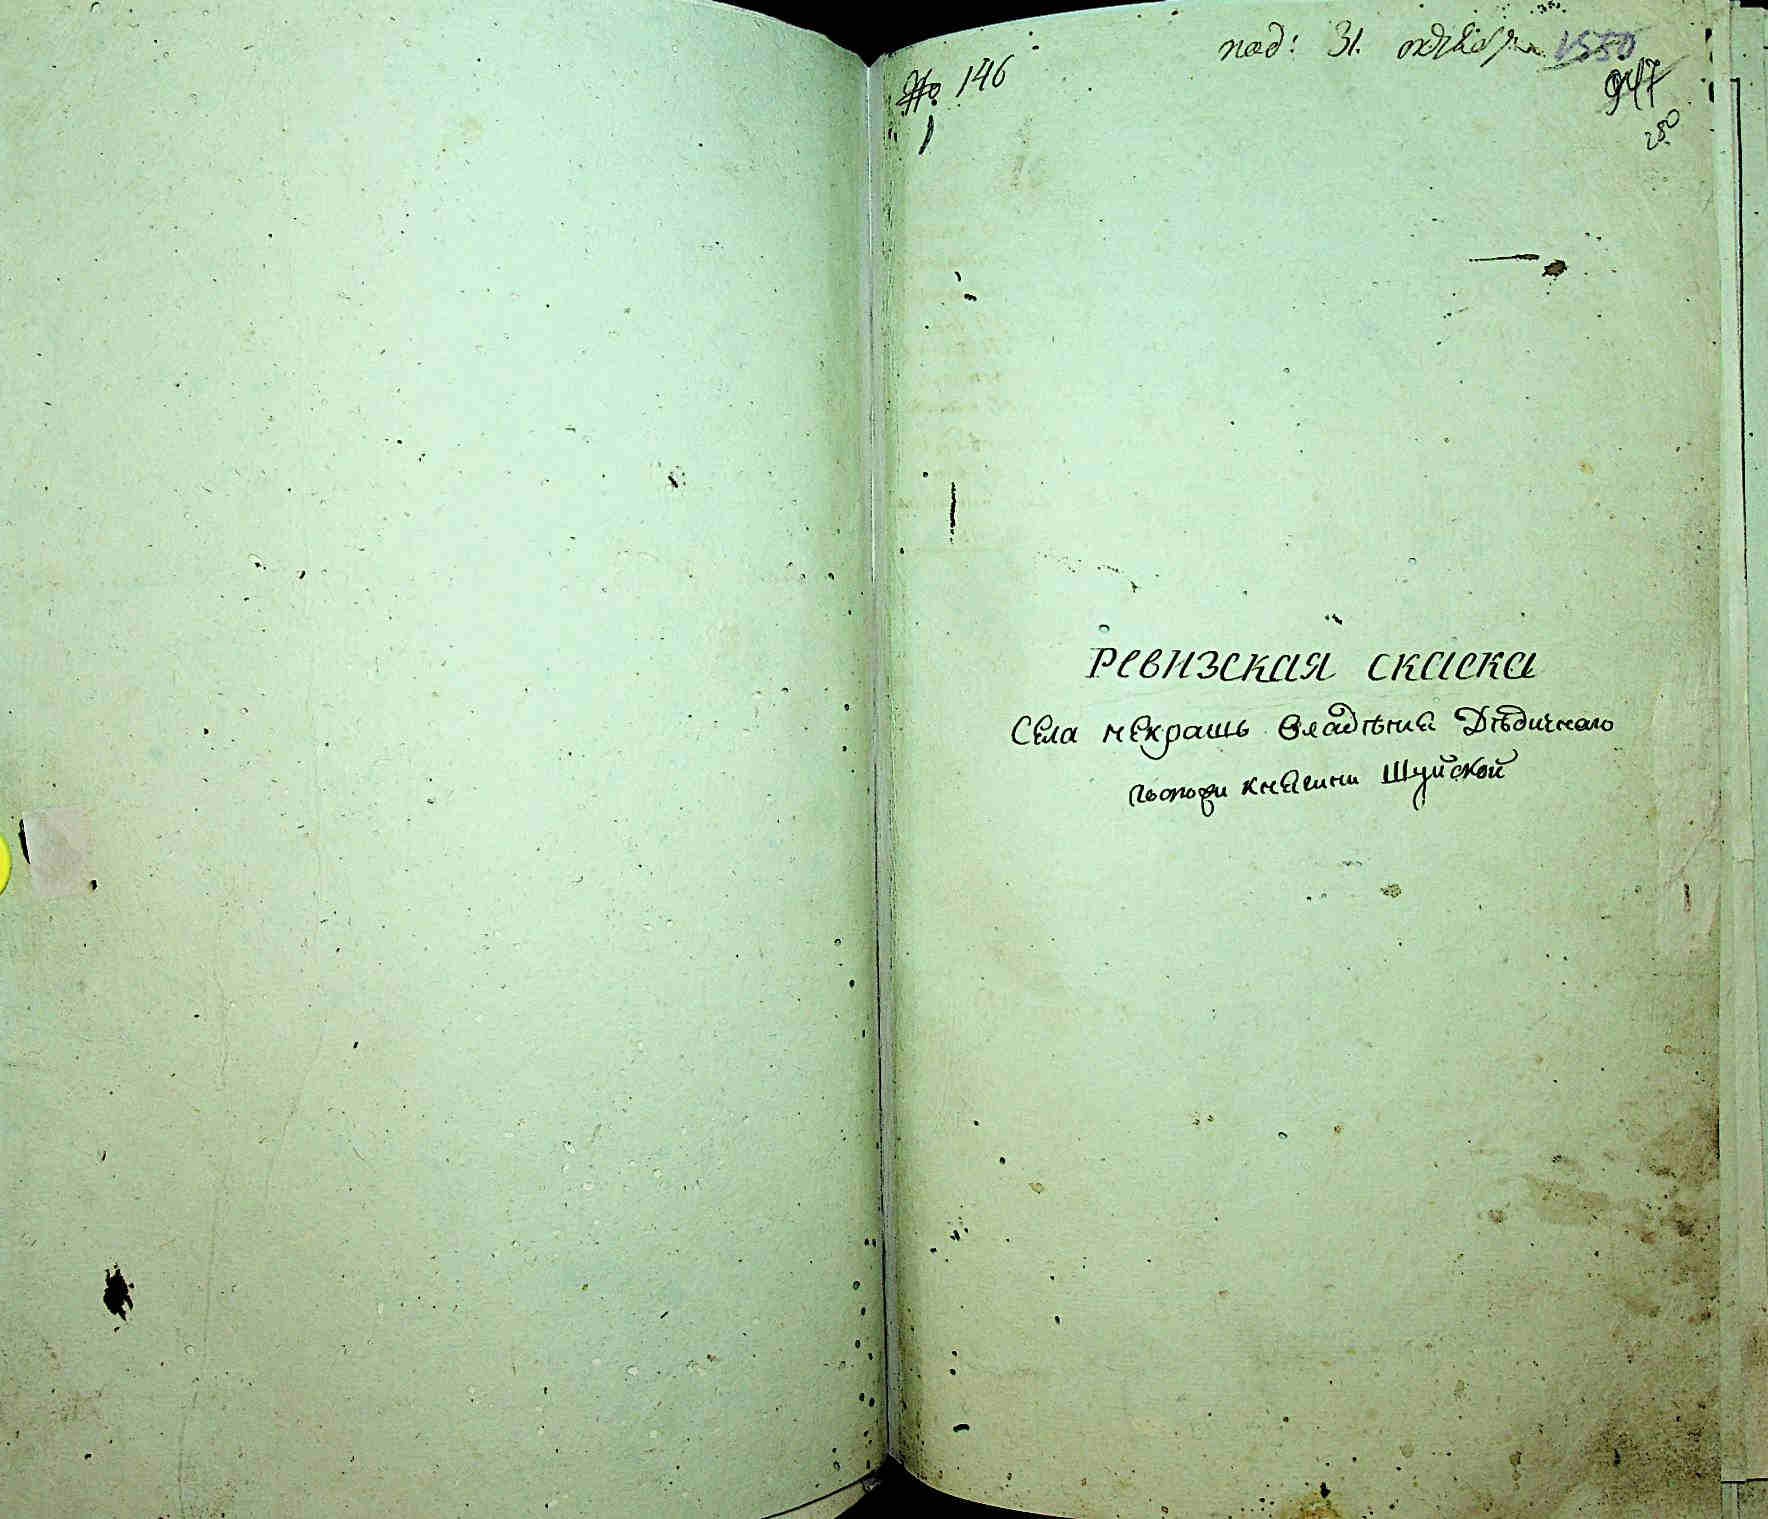 № 146
1
под: 31. октября 1850
947
280
Ревизская скаска
Села Некрашь владѣния Дѣдичнаго
княгини Шуйской